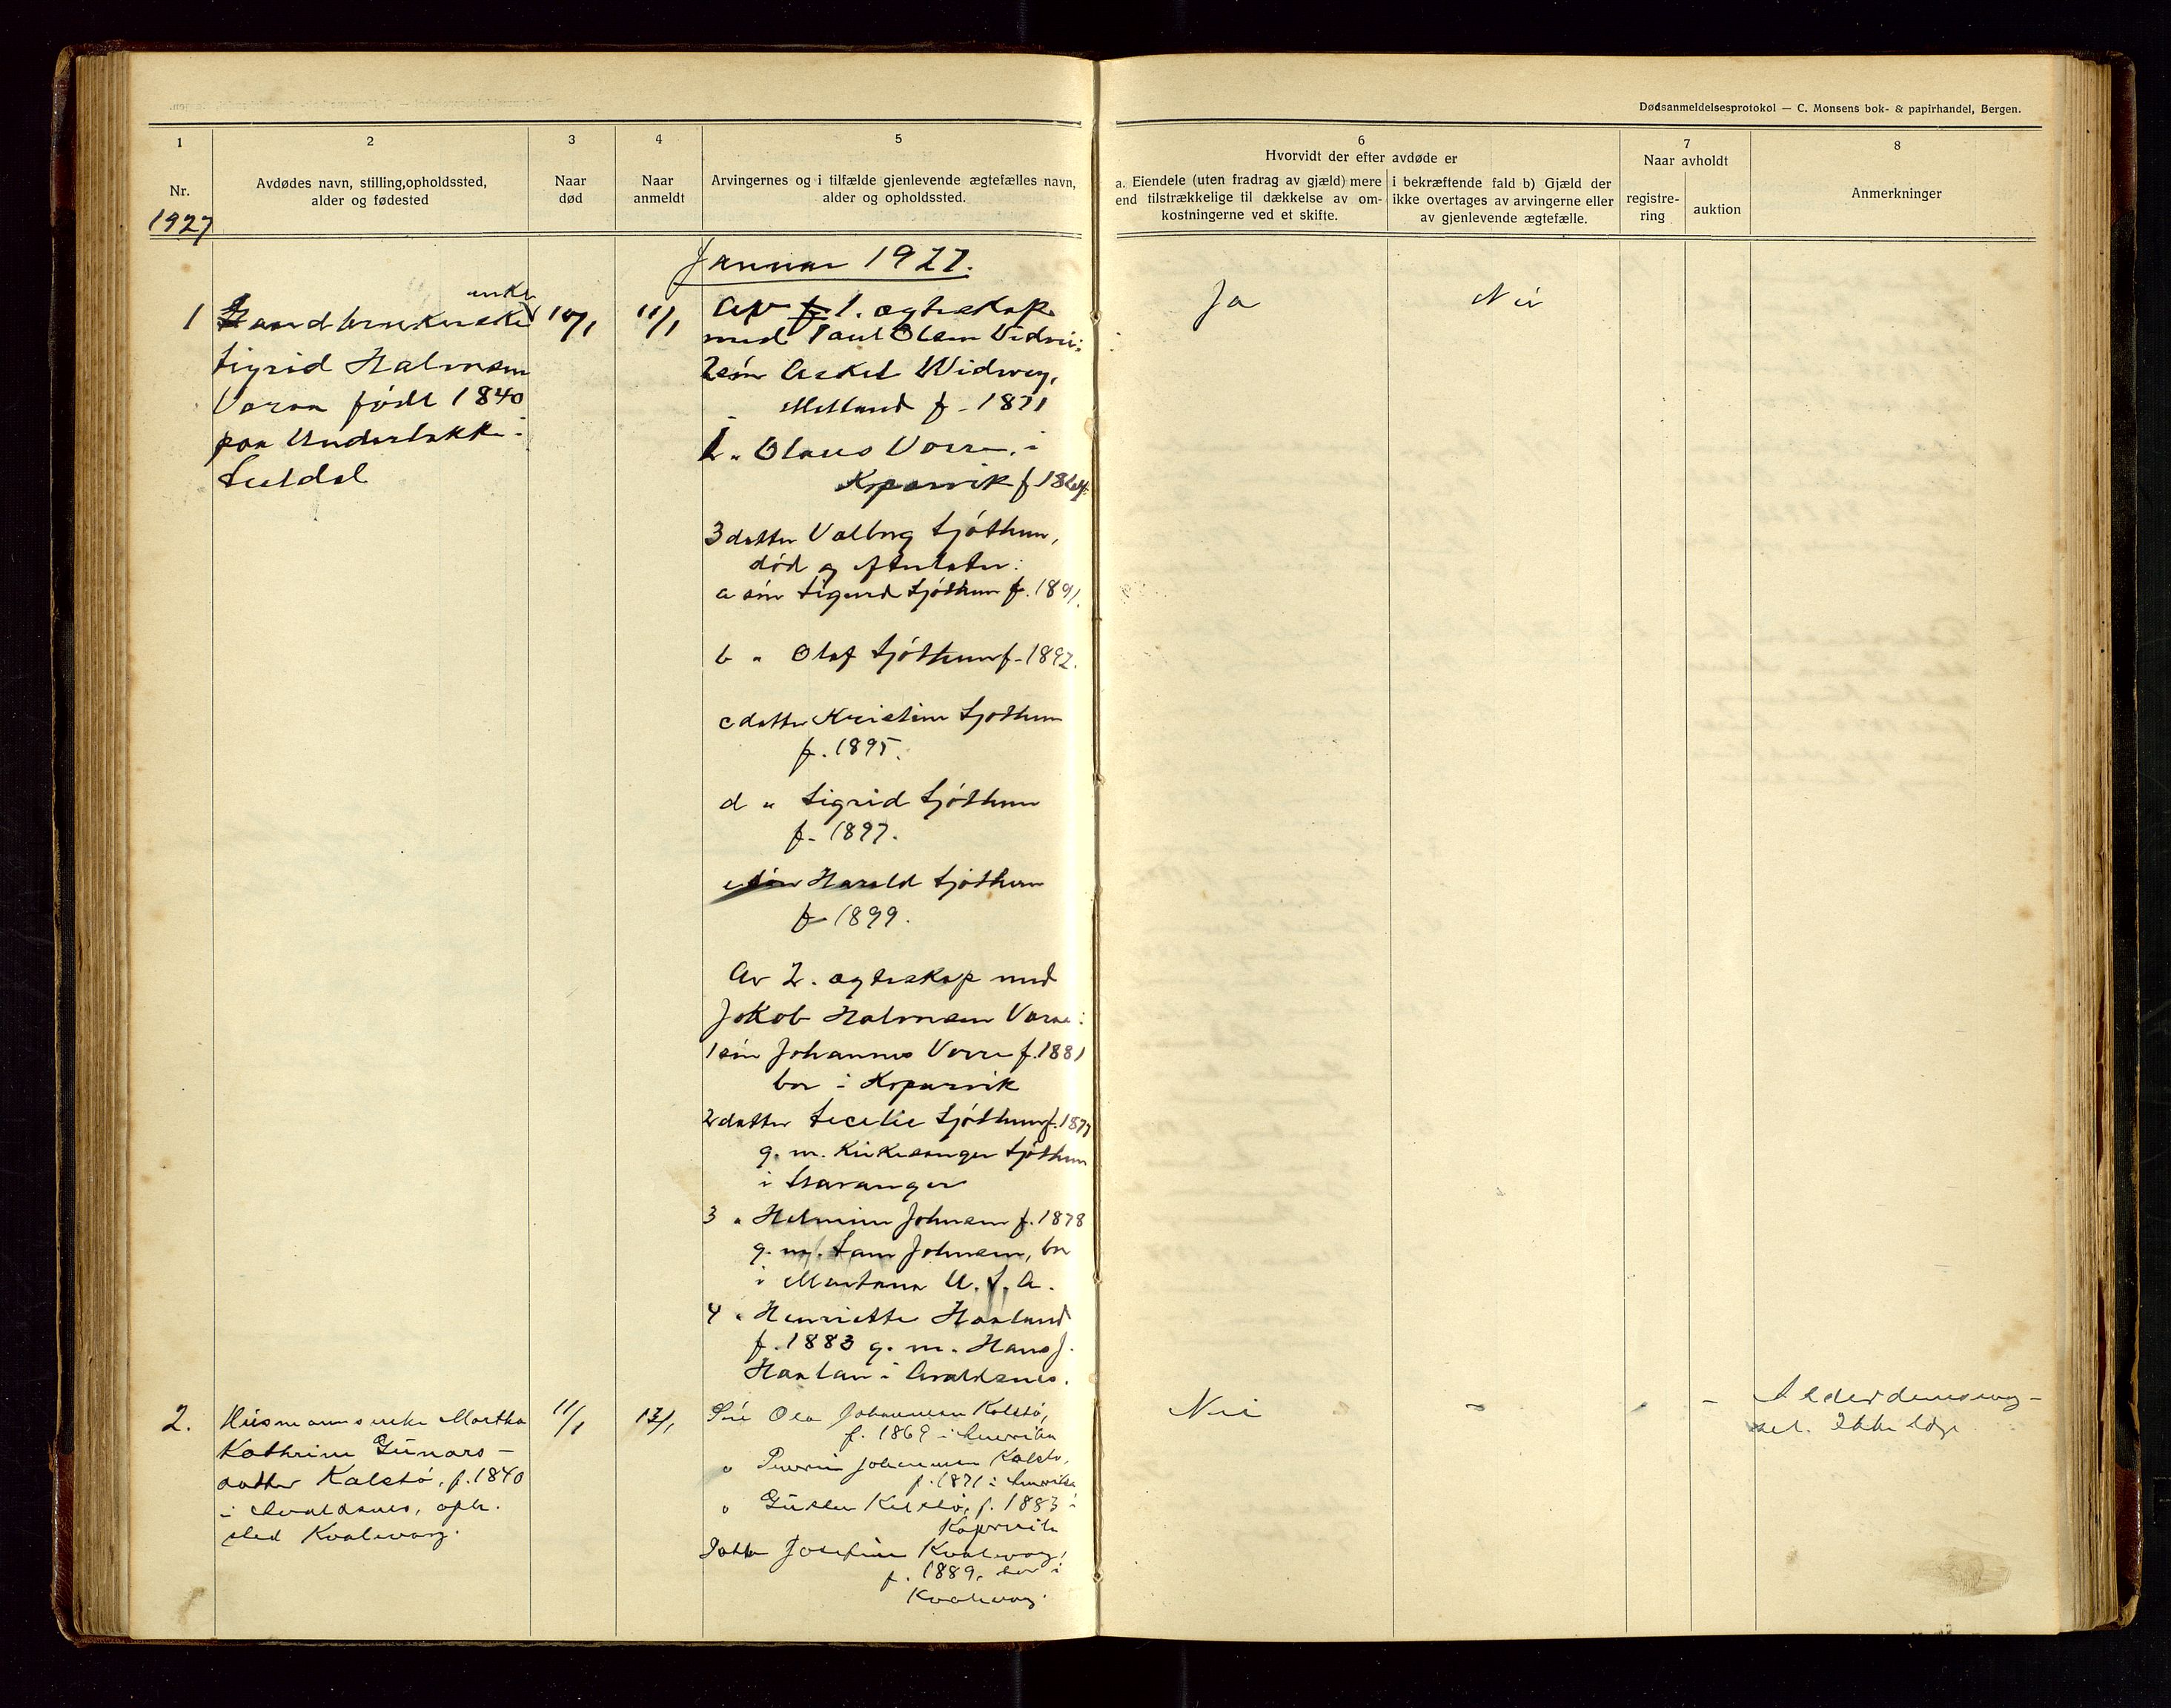 Dødsanmeldelsesprotokol — C. Monsens bok- & papirhandel, Bergen.
1
Nr.
1927
2
Avdødes navn, stilling, opholdssted,
alder og fødested
3
Naar
død
4
Naar
anmeldt
5
Arvingernes og i tilfælde gjenlevende ægtefælles navn,
alder og opholdssted.
6
Hvorvidt der efter avdøde er
a. Eiendele (uten fradrag av gjæld) mere
end tilstrækkelige til dækkelse av om-
kostningerne ved et skifte.
i bekræftende fald b) Gjæld der
ikke overtages av arvingerne eller
av gjenlevende ægtefælle.
7
Naar avholdt
registre-
ring
auktion
8
Anmerkninger
Januar 1927.
1
enke
Gaardbrukerske
Sigrid Halvorsen
Voraa født 1840
paa Underbakke i
Suldal
10/1
11/1
Av 1. ægteskap
med Paul Olsen Vidvei:
2 søn Askel Widwey,
f. 1871
1 " Olaus Vorre, i
Kopervik f.
3 datter Valborg Sjøthun,
død og efterlater:
a søn Sigurd Sjøthun f. 1891.
b " Olaf Sjøthun f. 1892.
c datter Kristine Sjøthun
f. 1895.
d " Sigrid Sjøthun
f. 1897.
e søn Harald Sjøthun
f 1899.
Av 2. ægteskap med
Jakob Halvorsen Voraa:
1 søn Johannes Vorre f. 1881
bor i Kopervik
2 datter Secelie Sjøthun f. 1877
g. m. Kirkesanger Sjøthun
i Stavanger
3 " Helmine Johnsen f. 1878
g. m. Sam Johnsen, bor
i Montana U. S. A.
4 " Henriette Haaland
f. 1883 g. m. Hans J.
Haalan i Avaldsnes.
Ja
Nei
2.
Husmannsenke Martha
Kathrine Gunars-
datter Kalstø, f. 1840
i Avaldsnes, oph.
sted Kvalevaag.
11/1
13/1
Søn Ola Johannesen Kalstø,
f. 1869 i Amerika
" Johannesen Kalstø,
f. 1871 i Amerika
" Kalstø, f. 1883 i
Kopervik
Datter Josefine Kvalevaag,
f. 1889, bor i
Kvalevaag.
Nei
-
-
-
Alderdomssvag-
het. Ikke læge